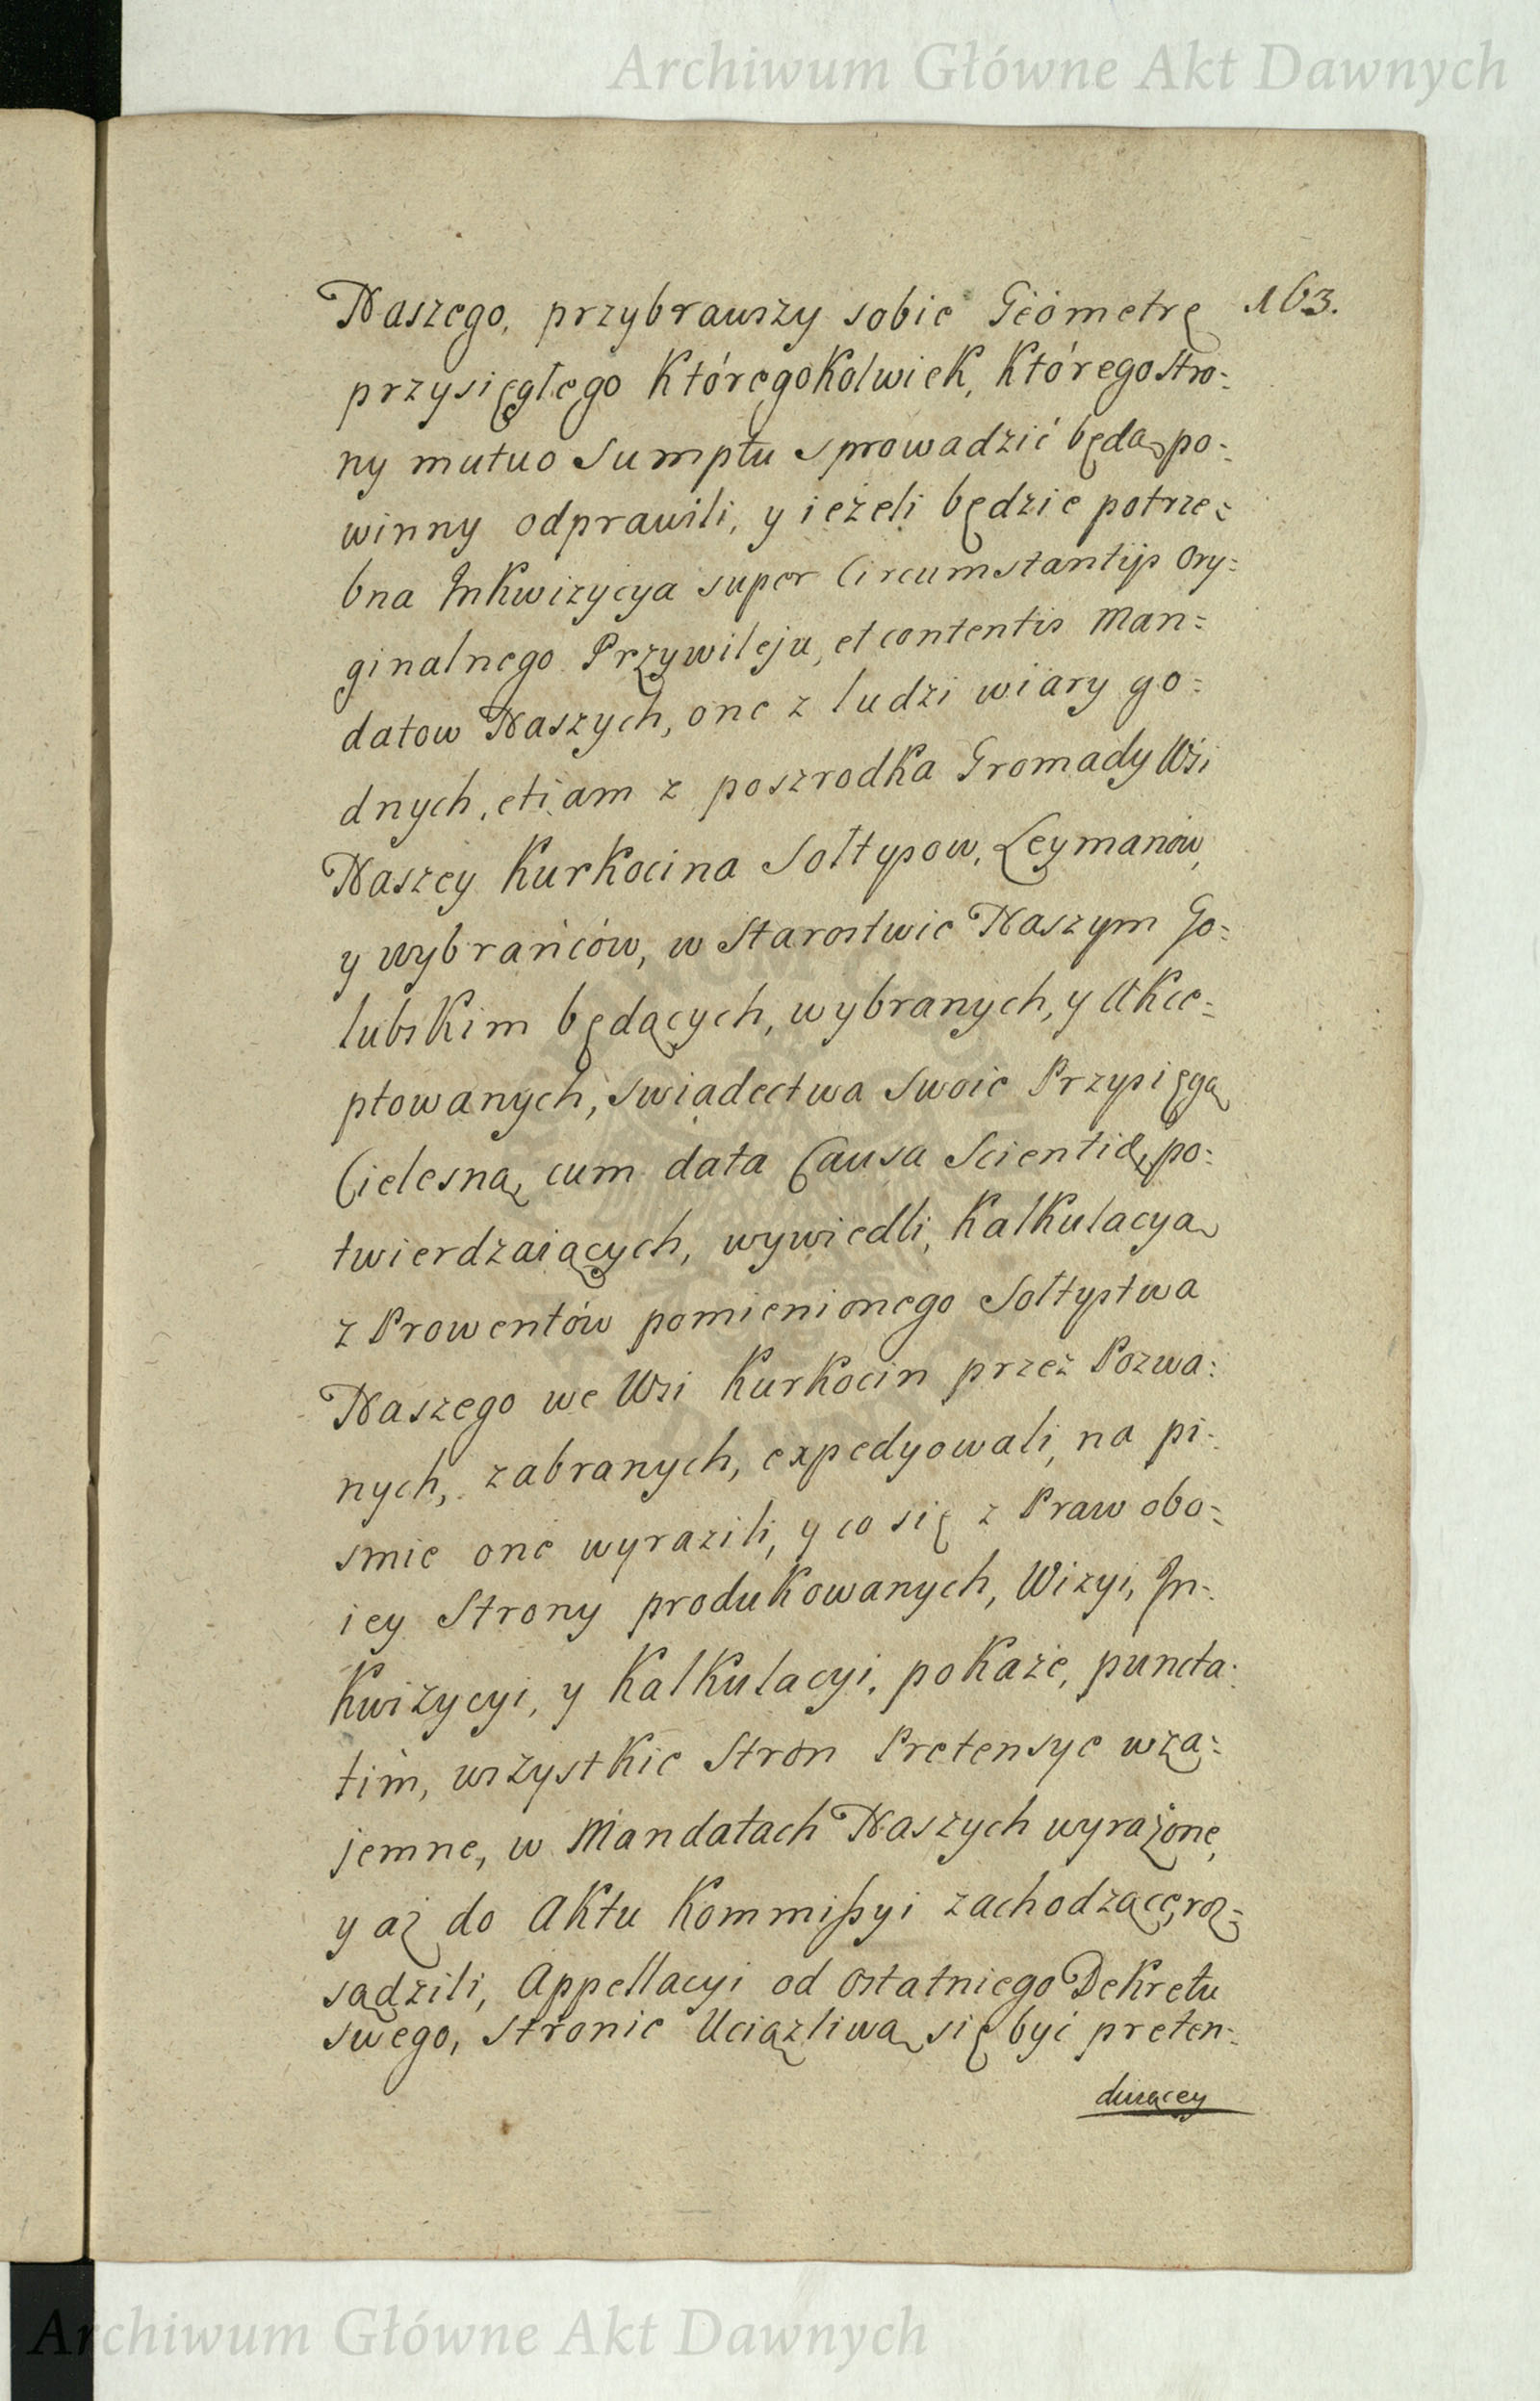 Archiwum Główne Akt Dawnych
163.
Naszego, przybrawszy sobie Geometrę
przysięgłego któregokolwiek, którego Stro-
ny mutuo Sumptu sprowadzić będą po-
winny odprawili, y ieżeli będzie potrze-
bna Inkwizycya super Circumstantijs Ory-
ginalnego Przywileju, et contentis Man-
datow Naszych, one z ludzi wiary go-
dnych, etiam z poszrodka Gromady Wsi
Naszey Kurkocina Sołtysow, Leymanów,
y wybrańców, w Starostwie Naszym Go-
lubskim będących, wybranych, y Akce-
ptowanych, swiadectwa swoie Przysięgą
Cielesną, cum data Causa Scientiæ, po-
twierdzaiących, wywiedli, Kalkulacyą
z Prowentów pomienionego Sołtystwa
Naszego we Wsi Kurkocin przez Pozwa-
nych, zabranych, expedyowali, na pi-
smie one wyrazili, y co się z Praw obo-
iey Strony produkowanych, Wizyi, In-
kwizycyi, y Kalkulacyi, pokaże, puncta-
tim, wszystkie Stron Pretensye wza-
jemne, w Mandatach Naszych wyrażone,
y aż do Aktu Kommissyi zachodzące, roz-
sądzili, Appellacyi od ostatniego Dekretu
swego, stronie Uciążliwą się być preten-
duiącey
Archiwum Główne Akt Dawnych